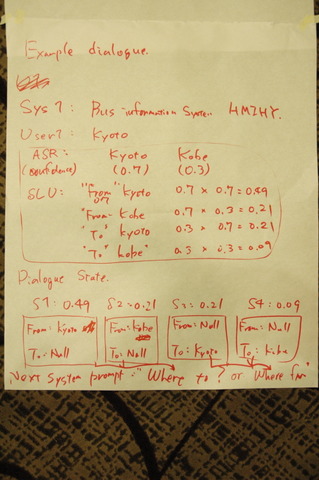 Example dialogue.
Sys1: Bus information System HMIHY.
User1: Kyoto
ASR: Kyoto Kobe
(confidence) (0.7) (0.3)
SLU: "From" Kyoto 0.7 x 0.7 = 0.49
"From" Kobe 0.7 x 0.3 = 0.21
"To" Kyoto 0.3 x 0.7 = 0.21
"To" kobe 0.3 x 0.3 = 0.09
Dialogue State.
S1: 0.49 S2: 0.21 S3: 0.21 S4: 0.09
From: Kyoto From: Kobe From: Null From: Null
To: Null To: Null To: Kyoto To: Kobe
Next system prompt: "Where to? or Where from"